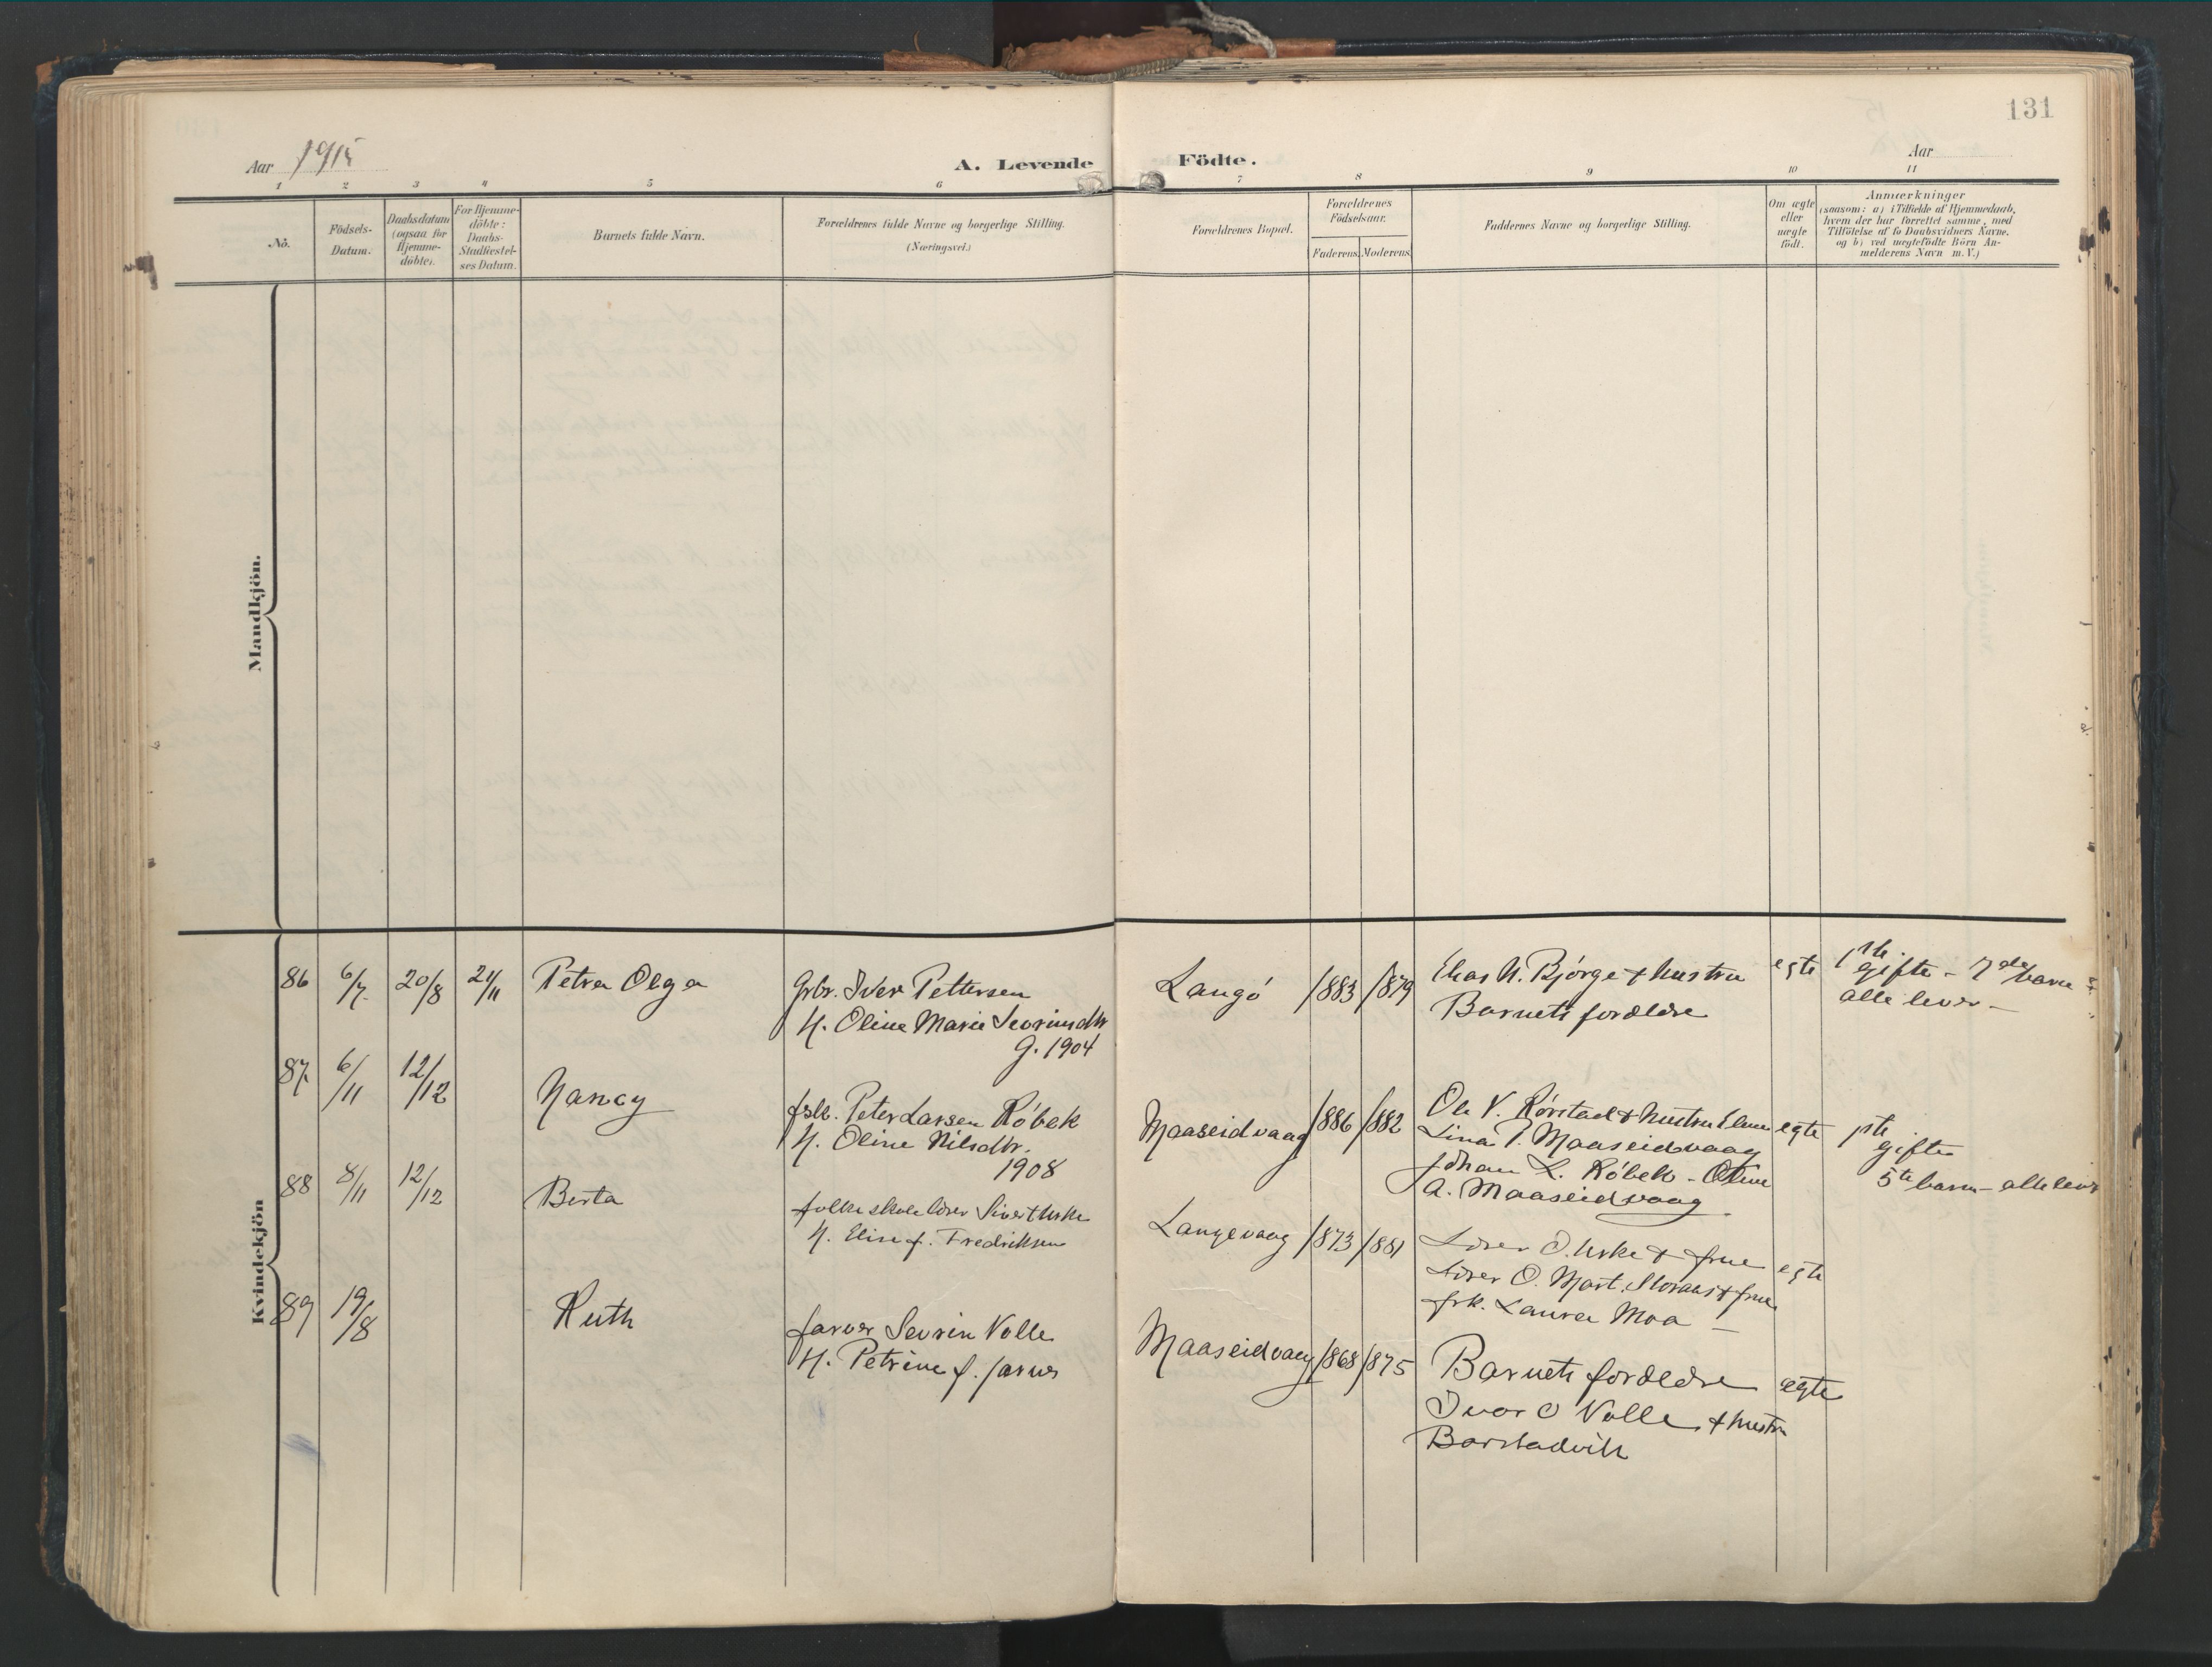 131
Aar 1915
A. Levende Födte.
Aar
1 2 3 4 5 6 7 8 9 10 11
No.
Födsels-
Datum.
Daabsdatum
(ogsaa for
Hjemme-
döbte).
For Hjemme-
döbte:
Daabs-
Stadfæstel-
ses Datum.
Barnets fulde Navn.
Forældrenes fulde Navne og borgerlige Stilling.
(Næringsvei.)
Forældrenes Bopæl.
Forældrenes
Födselsaar.
Faderens. Moderens.
Faddernes Navne og borgerlige Stilling.
Om ægte
eller
uægte
födt.
Anmærkninger
(saasom: a) i Tilfælde af Hjemmedaab,
hvem der har forrettet samme, med
Tilföielse af to Daabsvidners Navne.
og b) ved uægtefödte Börn An-
melderens Navn m. V.)
Mandkjön.
Kvindekjön
86 6/7 20/8 21/11 Petra Olga
Grbr. Iver Pettersen
H. Oline Marie Sevrinsdtr
G. 1904
Langó 1883 1879
Elias N. Bjørge & hustru
Barnets forældre
egte
1ste
gifte - 7de barn
alle lever -
87 6/11 12/12 Nancy
fslb. Peter Larsen Róbek
H. Oline Nilsdtr.
1908
Maaseidvaag 1886 1882
Ole V. Rórstad & hustru
Lina P. Maaseidvaag
Johan L. Róbek - Oline
A. Maaseidvaag
egte
1ste
gifte
5te barn - alle lever
88 8/11 12/12 Berta
folkeskolelærer Sivert Urke
H. Elise f. Fredriksen
Langevaag 1873 1881
Lærer O. Urke & frue
Lærer O. Mart. & frue
frk. Laura Moa -
egte
89 19/8 Ruth
farver Sevrin Volle
H. Petrine f. Jarnes
Maaseidvaag 1868 1875
Barnets forældre
Ivar O Volle & hustru
Barstadvik
egte